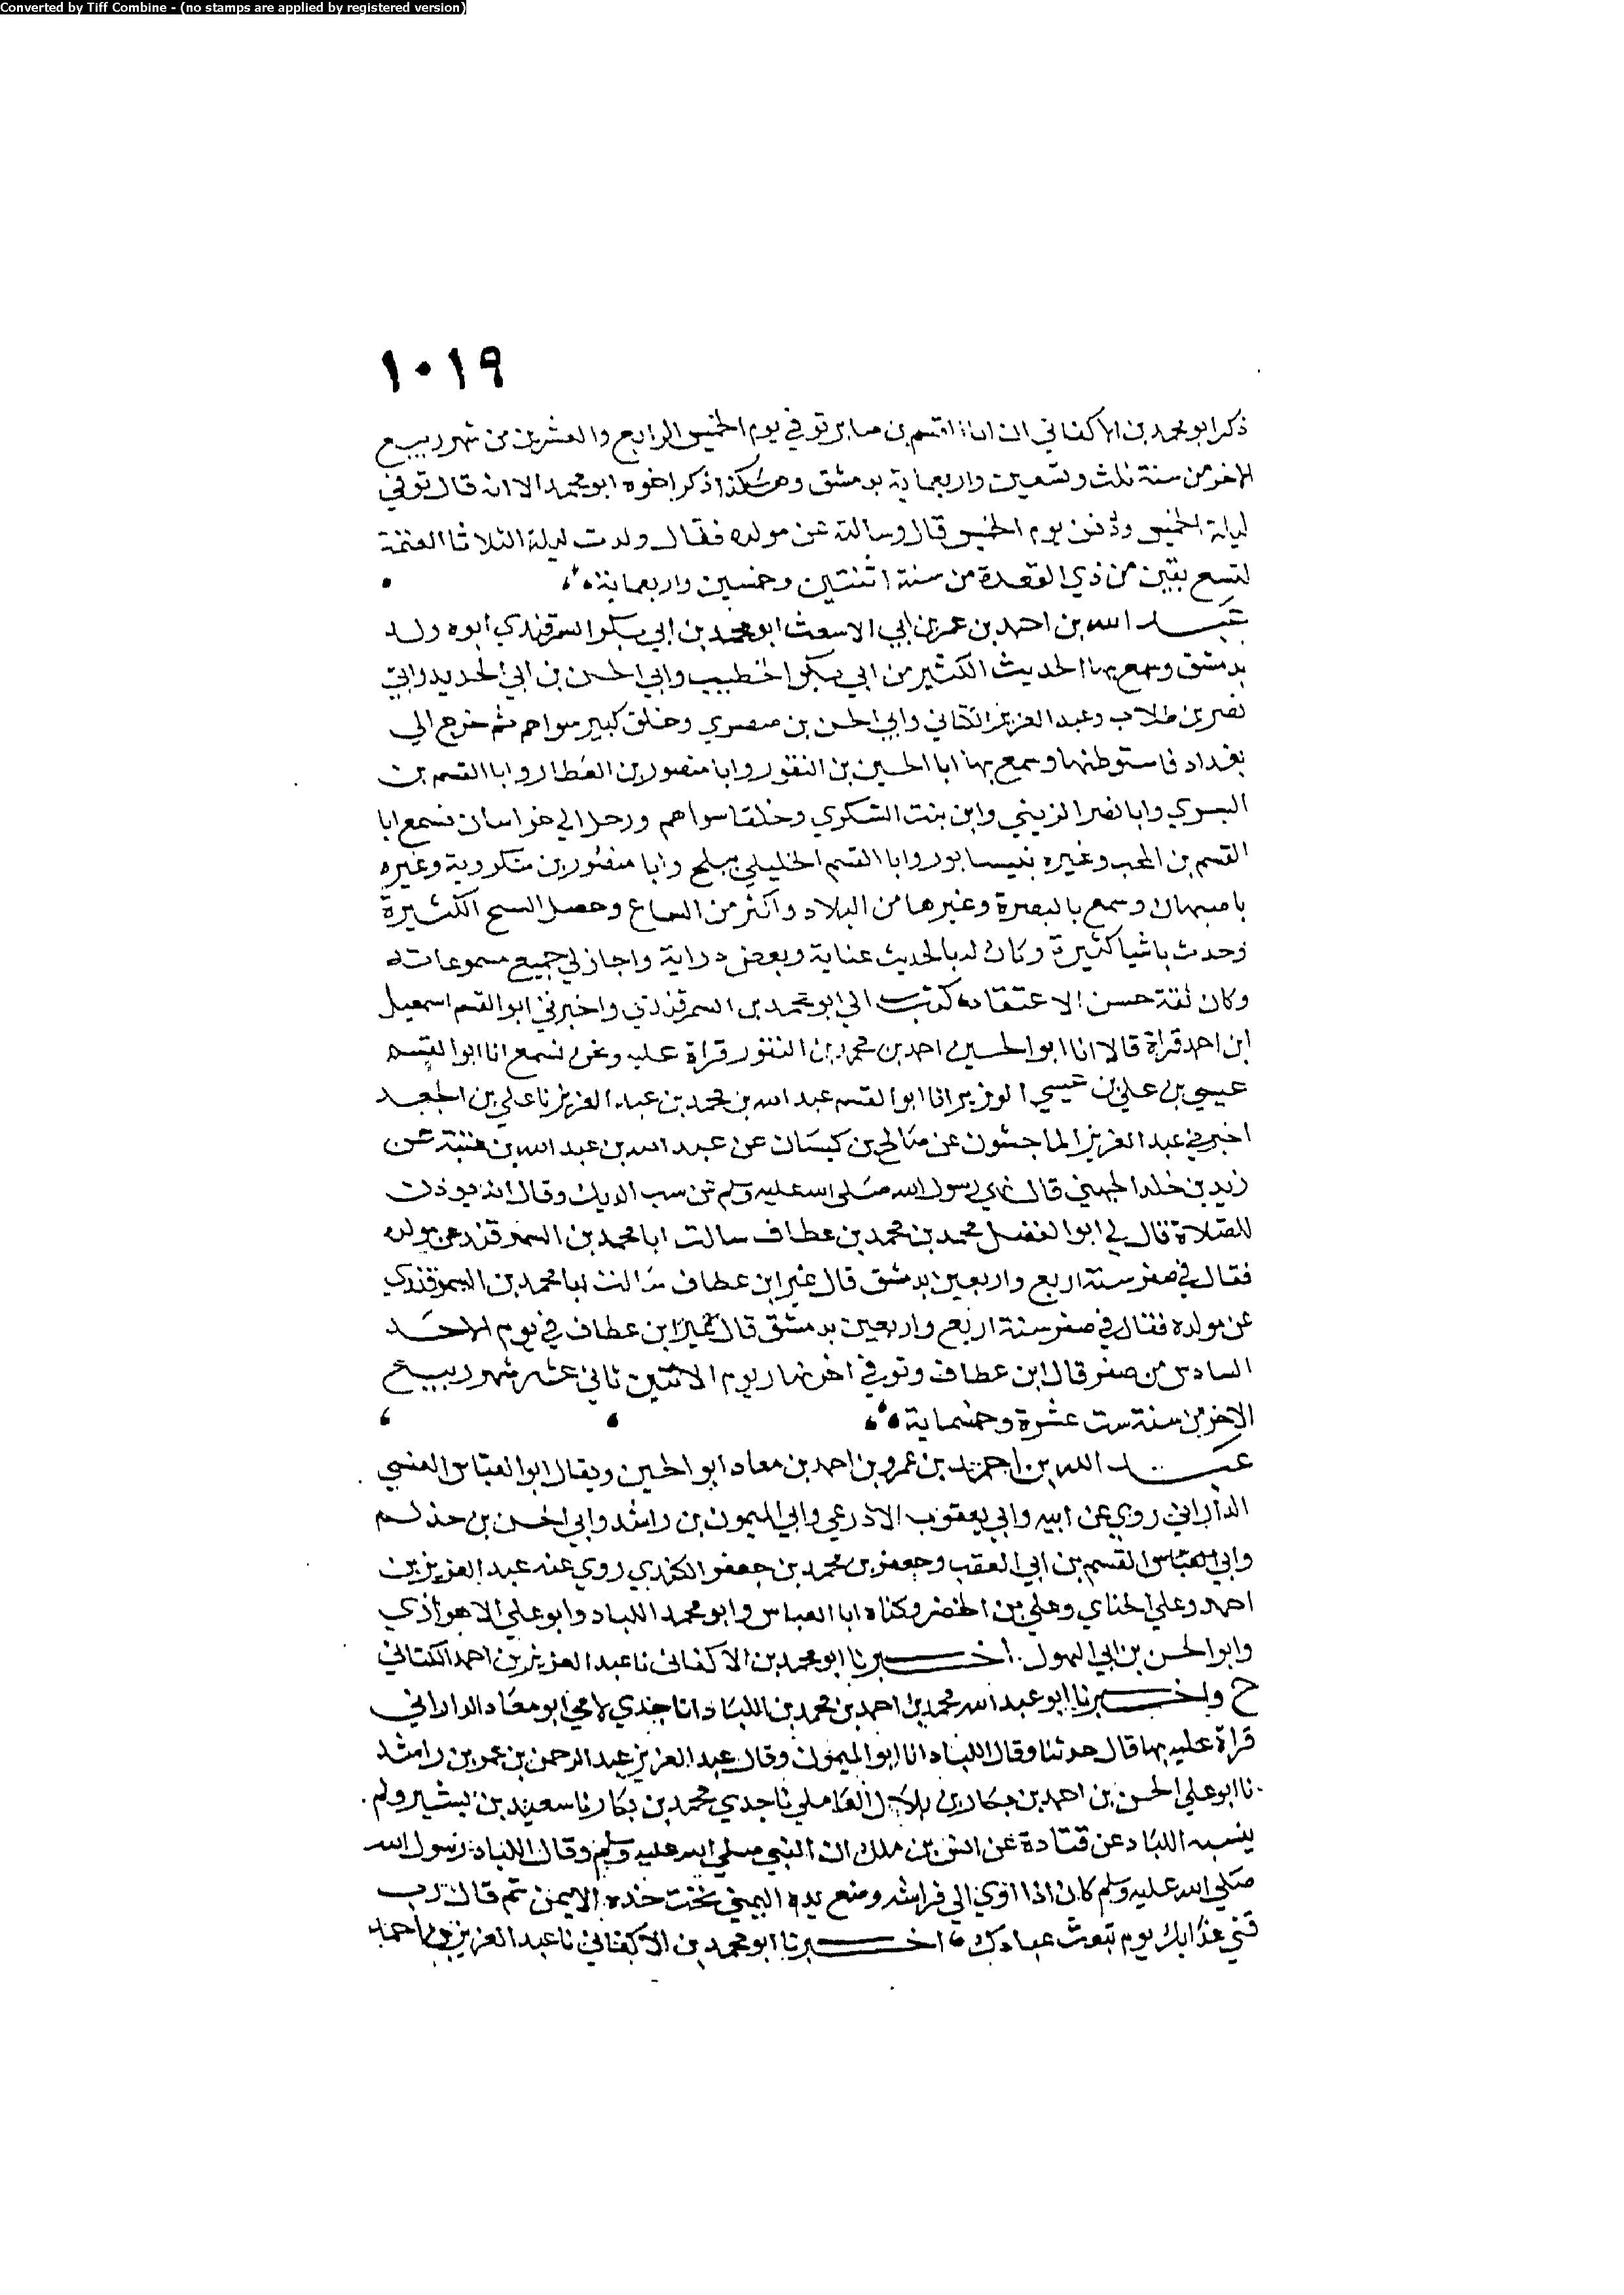 Converted by Tiff Combine - (no stamps are applied by registered version)
١٠١٩
ذكر ابو محمد بن الاكفاني ان ابا القسم بن صابر توفي في يوم الخميس الرابع والعشرين من شهر ربيع
الاخر من سنة ثلث وتسعين واربعماية بدمشق وهكذا ذكر اخوه ابو محمد الا انه قال توفي
ليلة الخميس ودفن يوم الخميس قال وسالته عن مولده فقال ولدت ليلة الثلاثا العتمة
لتسع بقين من ذي القعدة من سنة اثنتين وخمسين واربعماية
عبد الله بن احمد بن عمر بن ابي الاسعث ابو محمد بن ابي بكر السمرقندي ابوه ولد
بدمشق وسمع بها الحديث الكثير من ابي بكر الخطيب وابي الحسن بن ابي الحديد وابي
نصر بن طلاب وعبد العزيز الكتاني وابي الحسن بن صصري وخلق كبير سواهم ثم خرج الي
بغداد فاستوطنها وسمع بها ابا الحسين بن النقور وابا منصور بن العطار وابا القسم بن
البسري وابا نصر الزينبي وابن بنت السكري وخلقا سواهم ورحل الي خراسان فسمع ابا
القسم بن المحب وغيره بنيسابور وابا القسم الخليلي ببلخ وابا منصور بن شكروية وغيره
باصبهان وسمع بالبصرة وغيرها من البلاد واكثر من السماع وحصل النسخ الكثيرة
وحدث باشيا كثيرة وكان له بالحديث عناية وبعض دراية واجاز لي جميع مسموعاته
وكان ثقة حسن الاعتقاد كتب الي ابو محمد بن السمرقندي واخبرني ابو القسم اسمعيل
ابن احمد قراة قالا انا ابو الحسين احمد بن محمد بن النقور قراة عليه ونحن نسمع انا ابو القسم
عيسي بن علي بن عيسي الوزير انا ابو القسم عبد الله بن محمد بن عبد العزيز نا علي بن الجعد
اخبرني عبد العزيز الماجشون عن صالح بن كيسان عن عبد الله بن عبد الله بن عتبة عن
زيد بن خلد الجهني قال نهي رسول الله صلي الله عليه وسلم عن سب الديك وقال انه يوذن
للصلاة قال لي ابو الفضل محمد بن محمد بن عطاف سالت ابا محمد بن السمرقندي عن مولده
فقال في صفر سنة اربع واربعين بدمشق قال غير ابن عطاف سالت ابا محمد بن السمرقندي
عن مولده فقال في صفر سنة اربع واربعين بدمشق قال غير ابن عطاف في يوم الاحد
السادس من صفر قال ابن عطاف وتوفي اخر نهار يوم الاثنين ثاني عشر شهر ربيع
الاخر من سنة ست عشرة وخمسماية
عبد الله بن احمد بن عمرو بن احمد بن معاد ابو الحسين ويقال ابو العباس العنسي
الداراني روي عن ابيه وابي يعقوب الاذرعي وابي الميمون بن راشد وابي الحسن بن حذلم
وابي العباس القسم بن ابي العقب وجعفر بن محمد بن جعفر الكندي روي عنه عبد العزيز بن
احمد وعلي الحناي وعلي بن الخضر وكناه ابا العباس وابو محمد اللباد وابو علي الاهوازي
وابو الحسن بن ابي الهول اخبرنا ابو محمد بن الاكفاني نا عبد العزيز بن احمد الكتاني
ح واخبرنا ابو عبد الله محمد بن احمد بن محمد بن اللباد انا جدي لامي ابو معاد الداراني
قراة عليه بها قال حدثنا وقال اللباد انا ابو الميمون وقال عبد العزيز عبد الرحمن بن عمر بن راشد
نا ابو علي الحسن بن احمد بن بكار بن بلال العاملي نا جدي محمد بن بكار نا سعيد بن بشير ولم
ينسبه اللباد عن قتادة عن انس بن ملك ان النبي صلي الله عليه وسلم وقال اللباد رسول الله
صلي الله عليه وسلم كان اذا اوي الي فراشه وضع يده اليمني تحت خده الايمن ثم قال رب
قني عذابك يوم تبعث عبادك اخبرنا ابو محمد بن الاكفاني نا عبد العزيز بن احمد